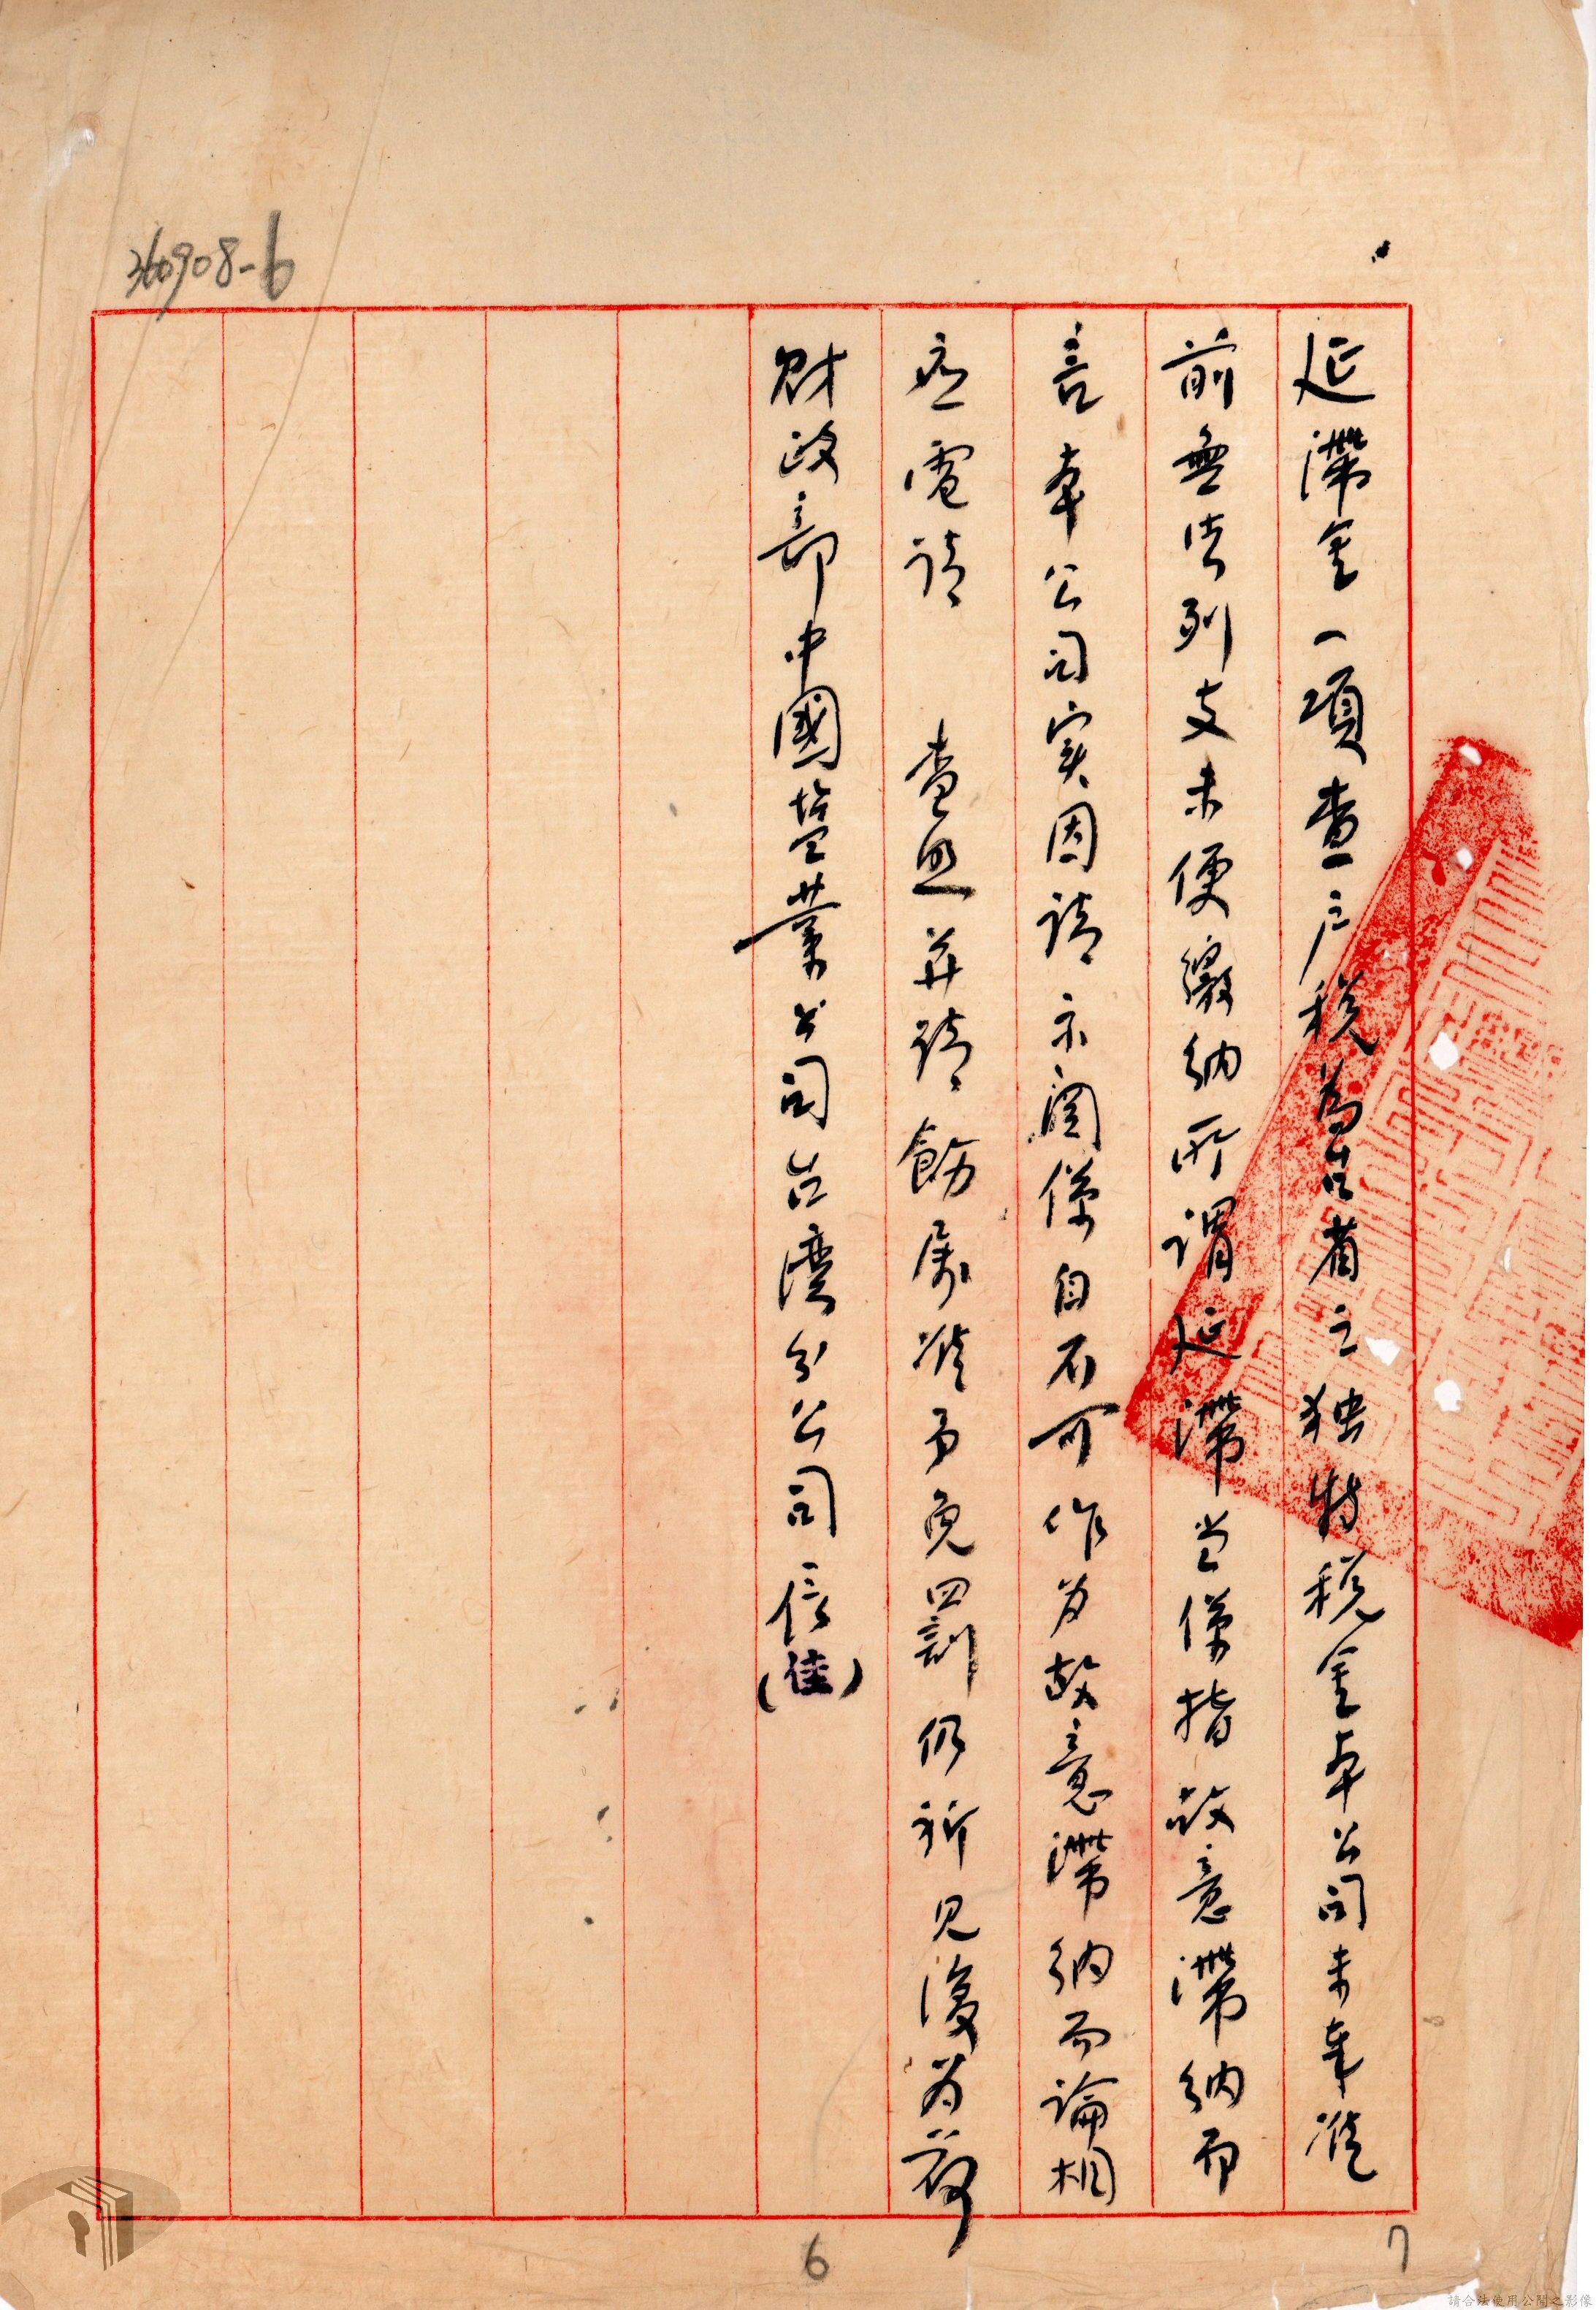 360908-6
延滯金一項查戶税為台省之独特税金本公司未奉准
前無法列支未便繳納所謂延滯当係指故意滯納而
言本公司实因請示関係自不可作为故意滯納而論相
应電請　查照并請飭屬准予免罰仍祈見復为荷
財政部中國盐業公司台湾分公司 (佳)
6
7
請合法使用公開之影像